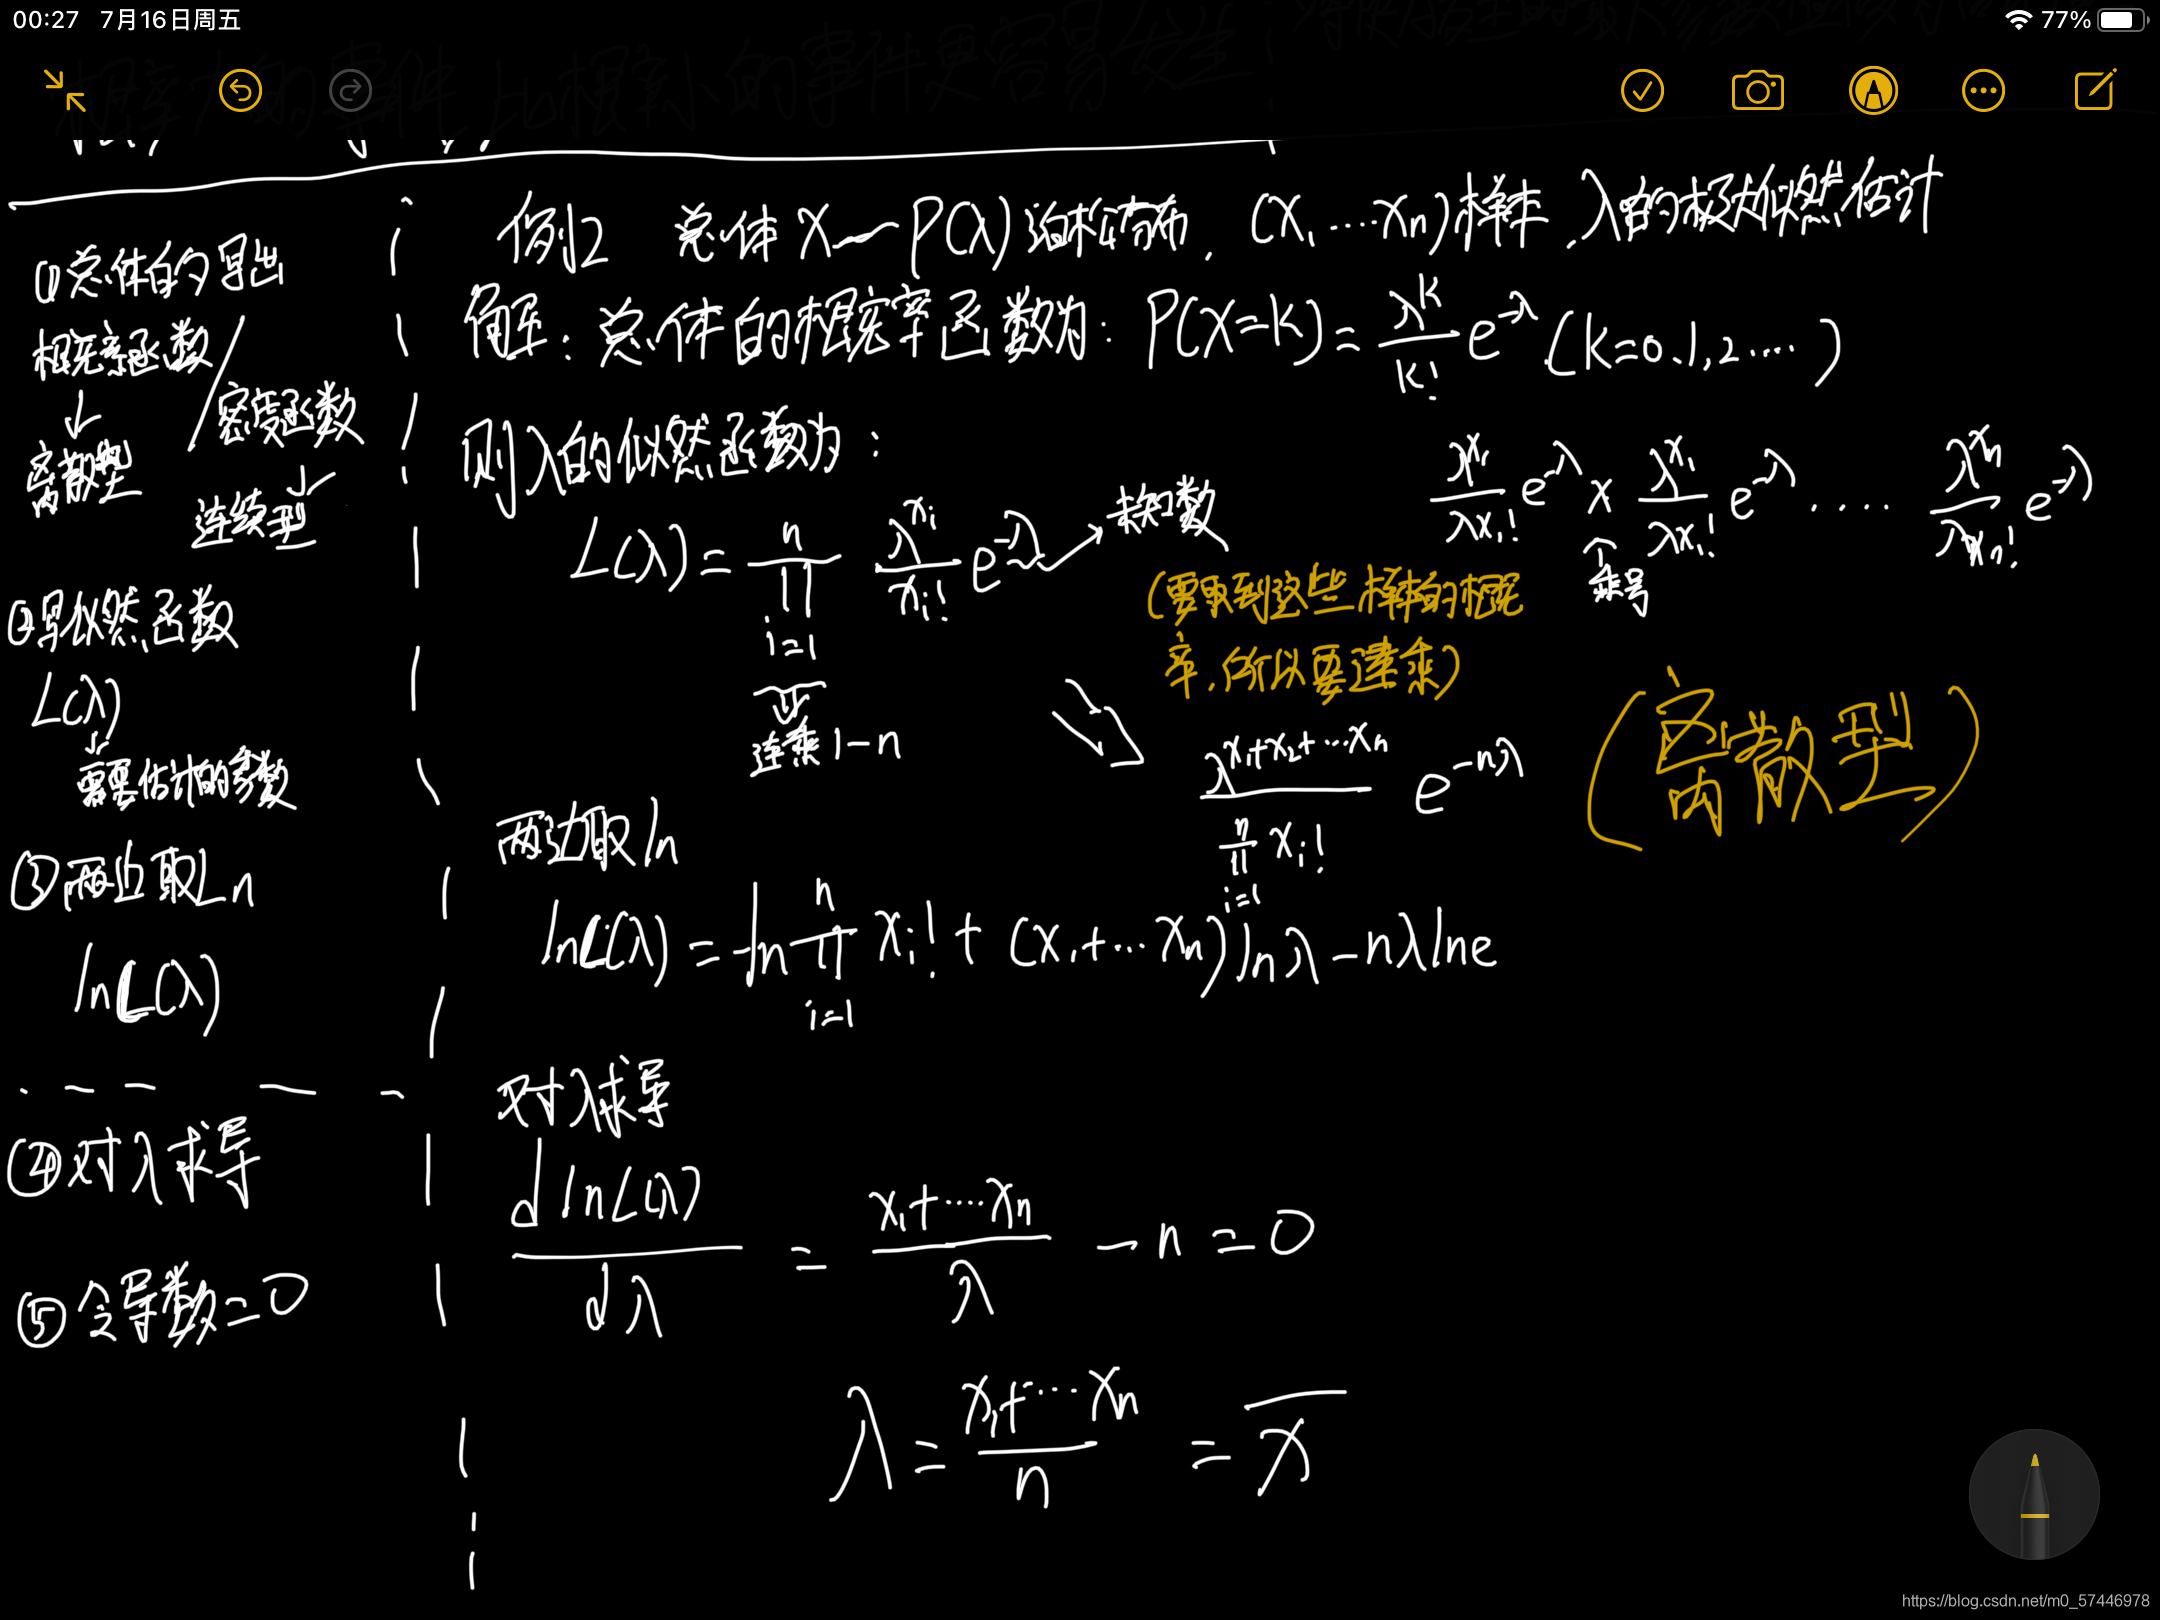 00:27 7月16日周五
77%
概率大的事件比概率小的事件更容易发生
①总体的写出
概率函数/密度函数
离散型
连续型
②写似然函数
L(λ)
需要估计的参数
③两边取Ln
lnL(λ)
④对λ求导
⑤令导数=0
例2 总体X~P(λ)泊松分布, (X₁…Xn)样本,λ的极大似然估计
解:总体的概率函数为: P(X=K)=λ^K/K! e^-λ (K=0.1,2….)
则λ的似然函数为:
L(λ)=∏(i=1→n) λ^xi/xi! e^-λ → 未知数
连乘1-n
λ^x₁/λx₁! e^-λ × λ^x₁/λx₁! e^-λ …. λ^xn/λxn! e^-λ
乘号
(要取到这些样本的概
率,所以要连乘)
λ^(x₁+x₂+…xn)/∏(i=1→n) xi! e^-nλ
(离散型)
两边取ln
lnL(λ)=-ln∏(i=1→n) xi!+(x₁+…xn)lnλ-nλlne
对λ求导
dlnL(λ)/dλ = (x₁+….xn)/λ - n = 0
λ=(x₁+…xn)/n = x̄
https://blog.csdn.net/m0_57446978